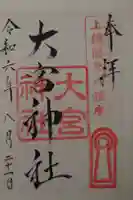 奉拝
大宮神社
大宮
神社
令和六年八月二十一日